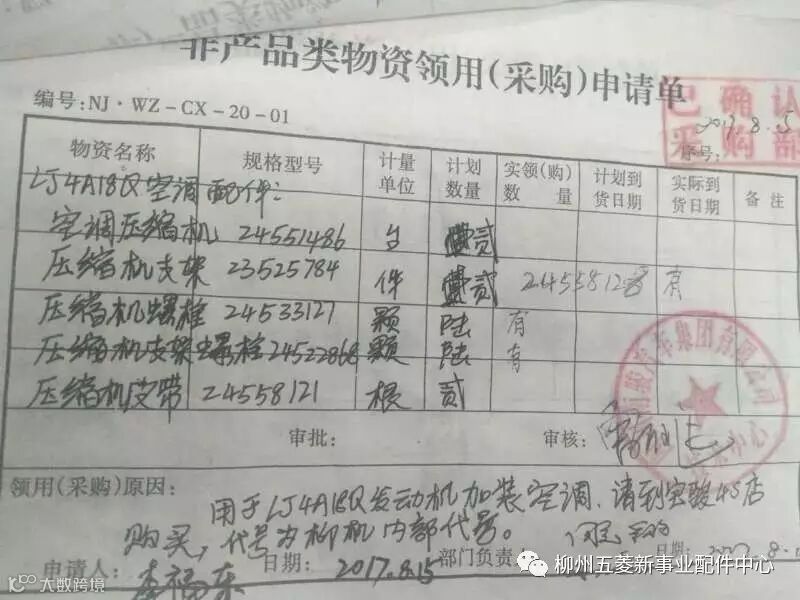 非产品类物资领用(采购)申请单
编号:NJ·WZ-CX-20-01
已确认
采购部
2017.8.15
序号:
物资名称 规格型号 计量单位 计划数量 实领(购)数量 计划到货日期 实际到货日期 备注
LJ4A18Q空调配件:
空调压缩机 24551486 台 贰
压缩机支架 23525784 件 贰 24558128 有
压缩机螺栓 24533127 颗 陆 有
压缩机支架螺栓 24522868 颗 陆 有
压缩机皮带 24558121 根 贰
审批: 审核:
领用(采购)原因:
用于LJ4A18Q发动机加装空调.请到宝骏4S店
购买,代号为柳机内部代号。
申请人: 李福东 日期: 2017.8.15 部门负责 日期: 2017.8.1
大数跨境
柳州五菱新事业配件中心